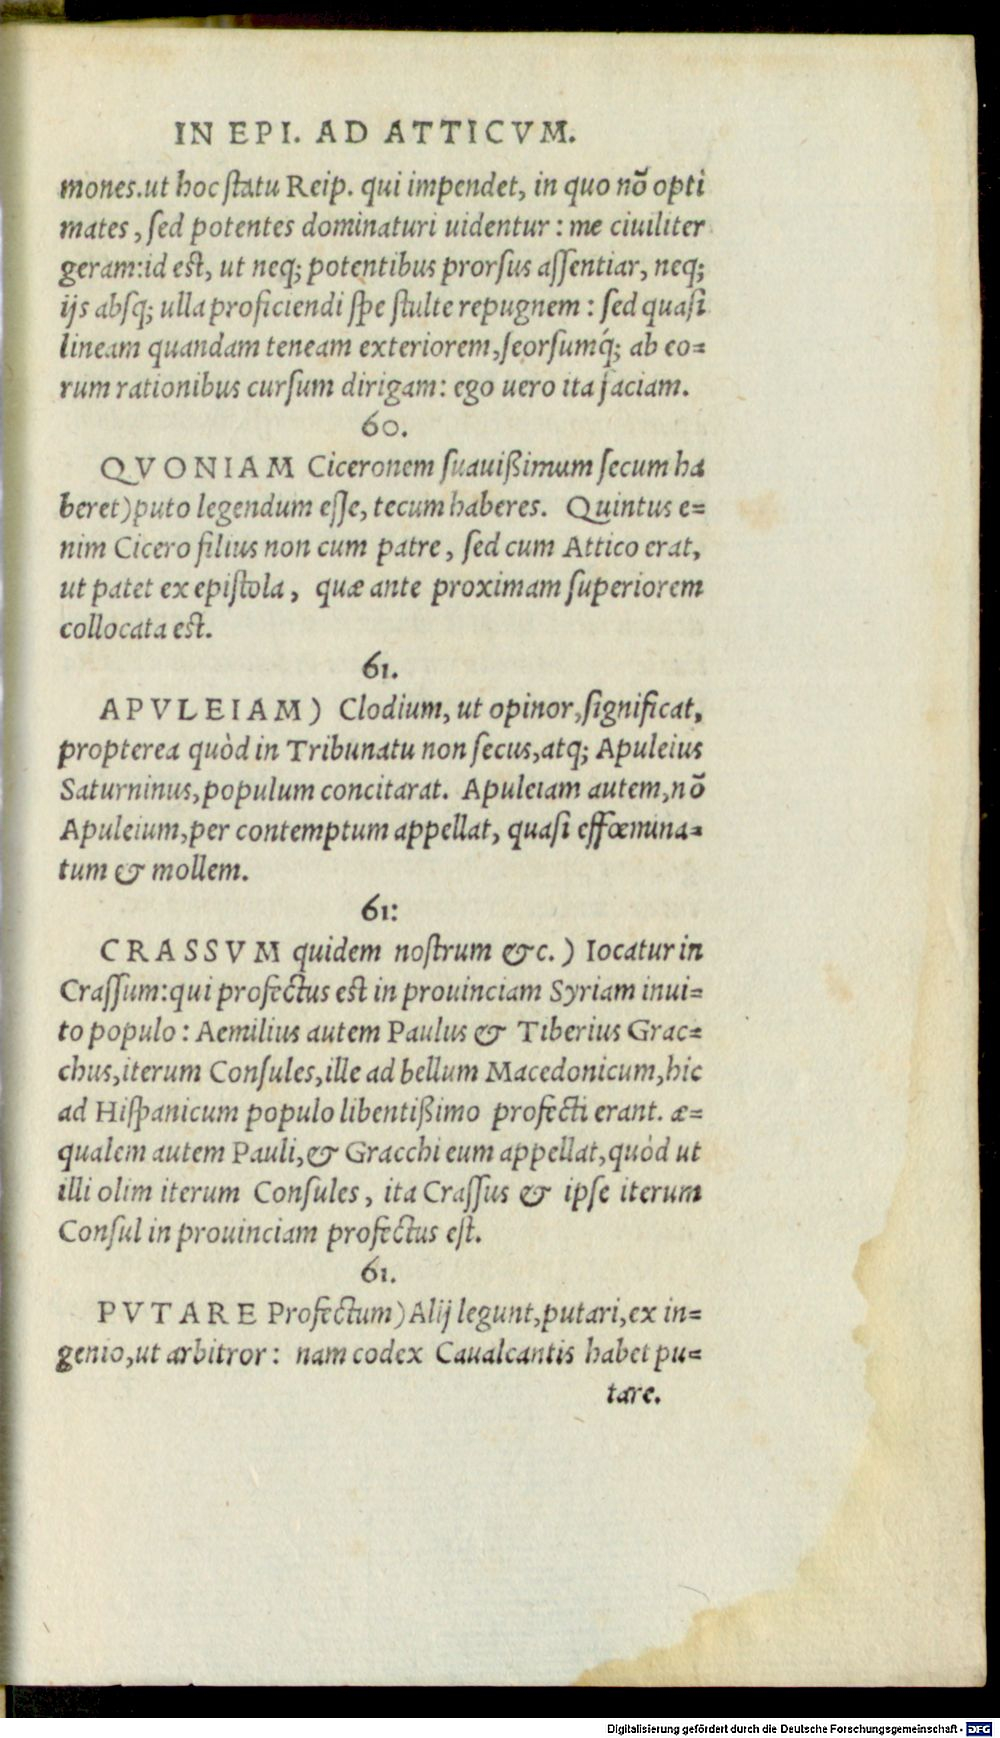 IN EPI. AD ATTICVM.
mones.ut hoc ſtatu Reip. qui impendet, in quo nō opti
mates, ſed potentes dominaturi uidentur: me ciuiliter
geram:id eſt, ut neq; potentibus prorſus aſſentiar, neq;
ijs abſq; ulla proficiendi ſpe ſtulte repugnem: ſed quaſi
lineam quandam teneam exteriorem,ſeorſumq́; ab eo=
rum rationibus curſum dirigam: ego uero ita faciam.
60.
QVONIAM Ciceronem ſuauißimum ſecum ha
beret)puto legendum eſſe, tecum haberes. Quintus e=
nim Cicero filius non cum patre, ſed cum Attico erat,
ut patet ex epiſtola, quæ ante proximam ſuperiorem
collocata eſt.
61.
APVLEIAM) Clodium, ut opinor,ſignificat,
propterea quòd in Tribunatu non ſecus,atq; Apuleius
Saturninus,populum concitarat. Apuleiam autem,nō
Apuleium,per contemptum appellat, quaſi effœmina=
tum & mollem.
61:
CRASSVM quidem noſtrum &c.) Iocatur in
Craſſum:qui profectus eſt in prouinciam Syriam inui=
to populo: Aemilius autem Paulus & Tiberius Grac=
chus,iterum Conſules,ille ad bellum Macedonicum,hic
ad Hiſpanicum populo libentißimo profecti erant. æ=
qualem autem Pauli,& Gracchi eum appellat,quòd ut
illi olim iterum Conſules, ita Craſſus & ipſe iterum
Conſul in prouinciam profectus eſt.
61.
PVTARE Profectum)Alij legunt,putari,ex in=
genio,ut arbitror: nam codex Caualcantis habet pu=
tare.
Digitalisierung gefördert durch die Deutsche Forschungsgemeinschaft - DFG